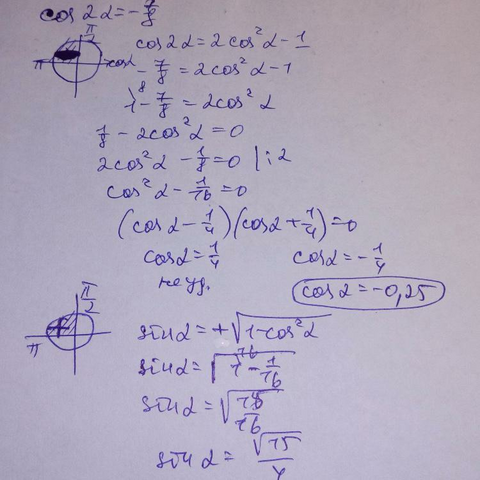 cos 2α = -7/8
π/2
cos 2α = 2cos²α - 1
π
cosα
-7/8 = 2cos²α - 1
1 - 7/8 = 2cos²α
1/8 - 2cos²α = 0
2cos²α - 1/8 = 0 | : 2
cos²α - 1/16 = 0
(cosα - 1/4)(cosα + 1/4) = 0
cosα = 1/4 cosα = -1/4
не уд. cosα = -0,25
π/2
+
π
sinα = +√(1 - cos²α)
sinα = √(1 - 1/16)
sinα = √(15/16)
sinα = √15/4